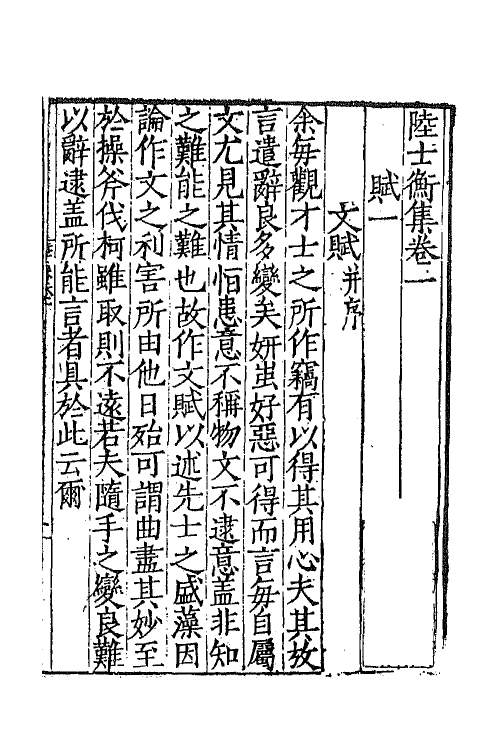 陸士衡集卷一
賦一
文賦并序
余毎觀才士之所作竊有以得其用心夫其放
言遣辭良多變矣妍蚩好惡可得而言毎自屬
文尤見其情恒患意不稱物文不逮意盖非知
之難能之難也故作文賦以述先士之盛藻因
論作文之利害所由他日殆可謂曲盡其妙至
於操斧伐柯雖取則不遠若夫隨手之變良難
以辭逮盖所能言者具於此云爾